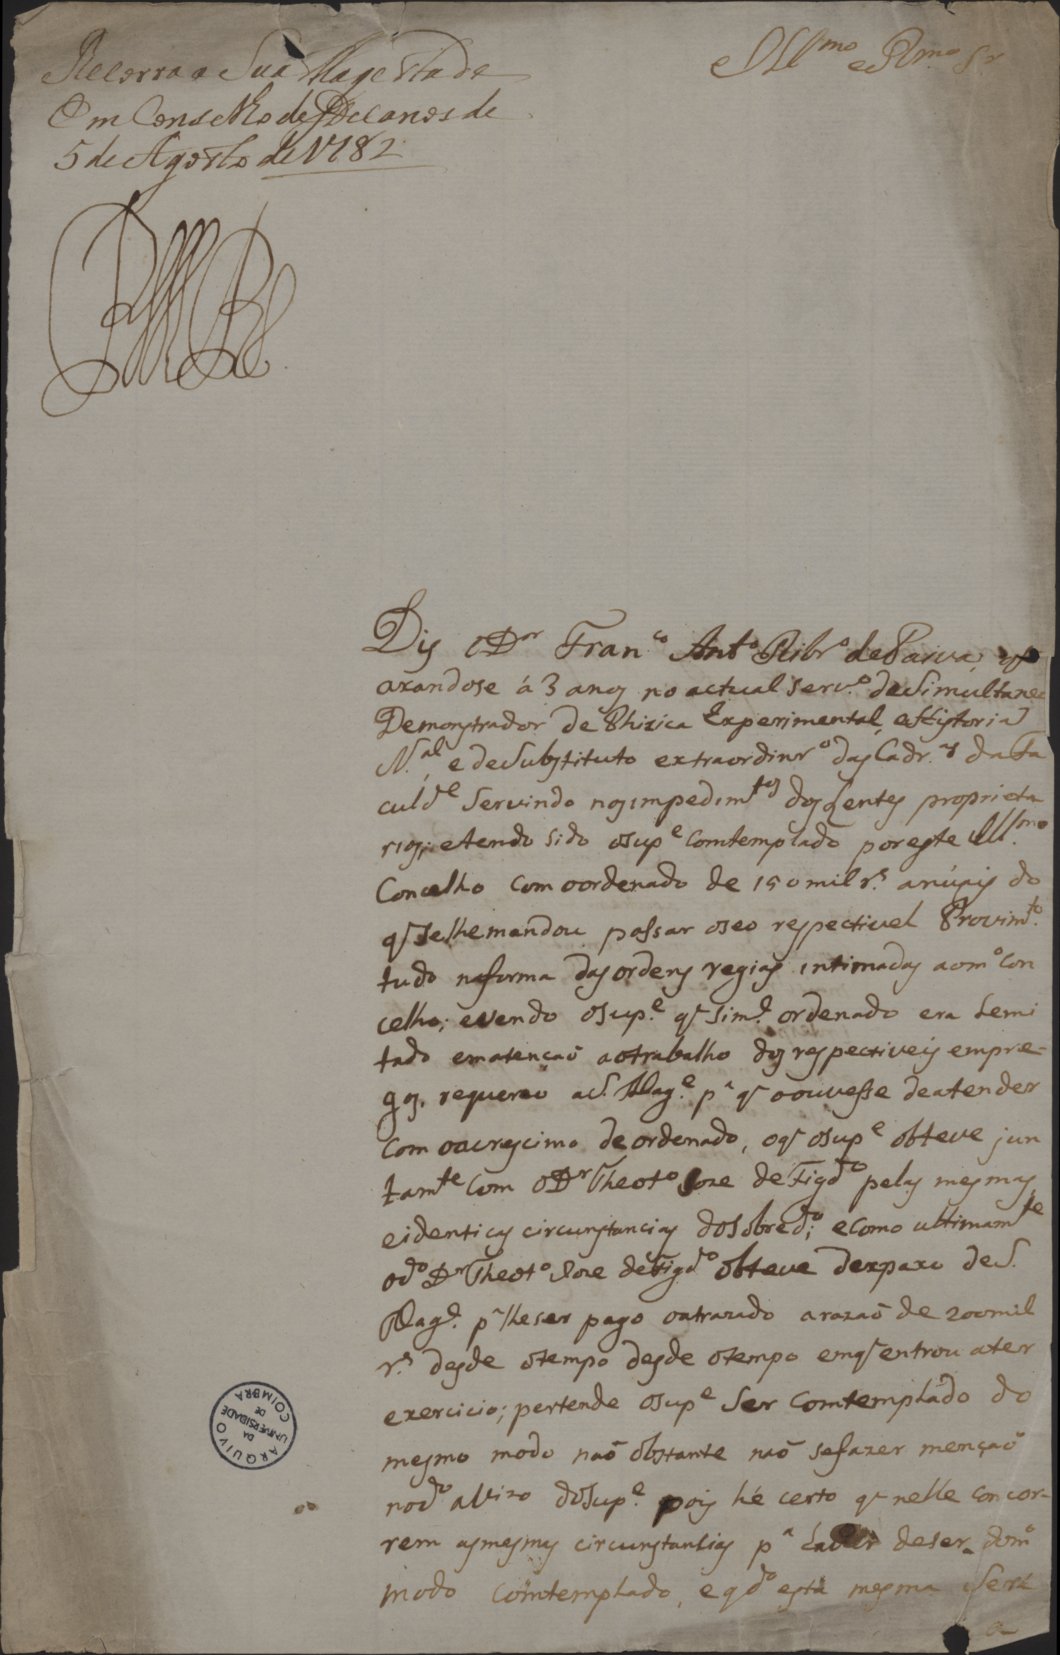 Recorra a Sua Magestade
Em Conselho de Decanos de
5 de Agosto de 1782
Illmo e Rmo Sr
Dis o Dor Franco Anto Ribro de Paiva, q
axandose á 3 anos no actual servo de Simultaneo
Demonstrador de Phizica Experimental, e Historia
N.al e de Substituto extraordinro das Cadras da Fa
culde servindo nos impedimtos dos Lentes proprieta
rios; e tendo sido o supe comtemplado por este Illmo
Concelho com o ordenado de 150 mil rs anúais do
q se lhe mandou passar o seo respectivel Provimto
tudo na forma das ordens regias intimadas ao mo Con
celho; e vendo o supe q o simd ordenado era lemi
tado em atenção ao trabalho dos respectiveis empre-
gos, requereo a S. Mage pa q o ouvesse de atender
com o acrescimo de ordenado, o q o supe obteve jun
tamte com o Dr Theoto Joze de Figdo pelas mesmas
e identicas circunstancias do sobredo; e como ultimamte
o do Dr Theoto Joze de Figdo obteve dexpaxo de S.
Mage pa lhe ser pago o atrazado a razaõ de 200 mil
rs desde o tempo desde o tempo em q entrou a ter
exercicio; pertende o supe ser comtemplado do
mesmo modo naõ obstante naõ se fazer mençaõ
no do avizo do supe pois hé certo q nelle concor-
rem as mesmas circunstancias pa haver de ser do mo
modo comtemplado, e qdo esta mesma seja
a
ARQUIVO
DA
UNIVERSIDADE
DE
COIMBRA